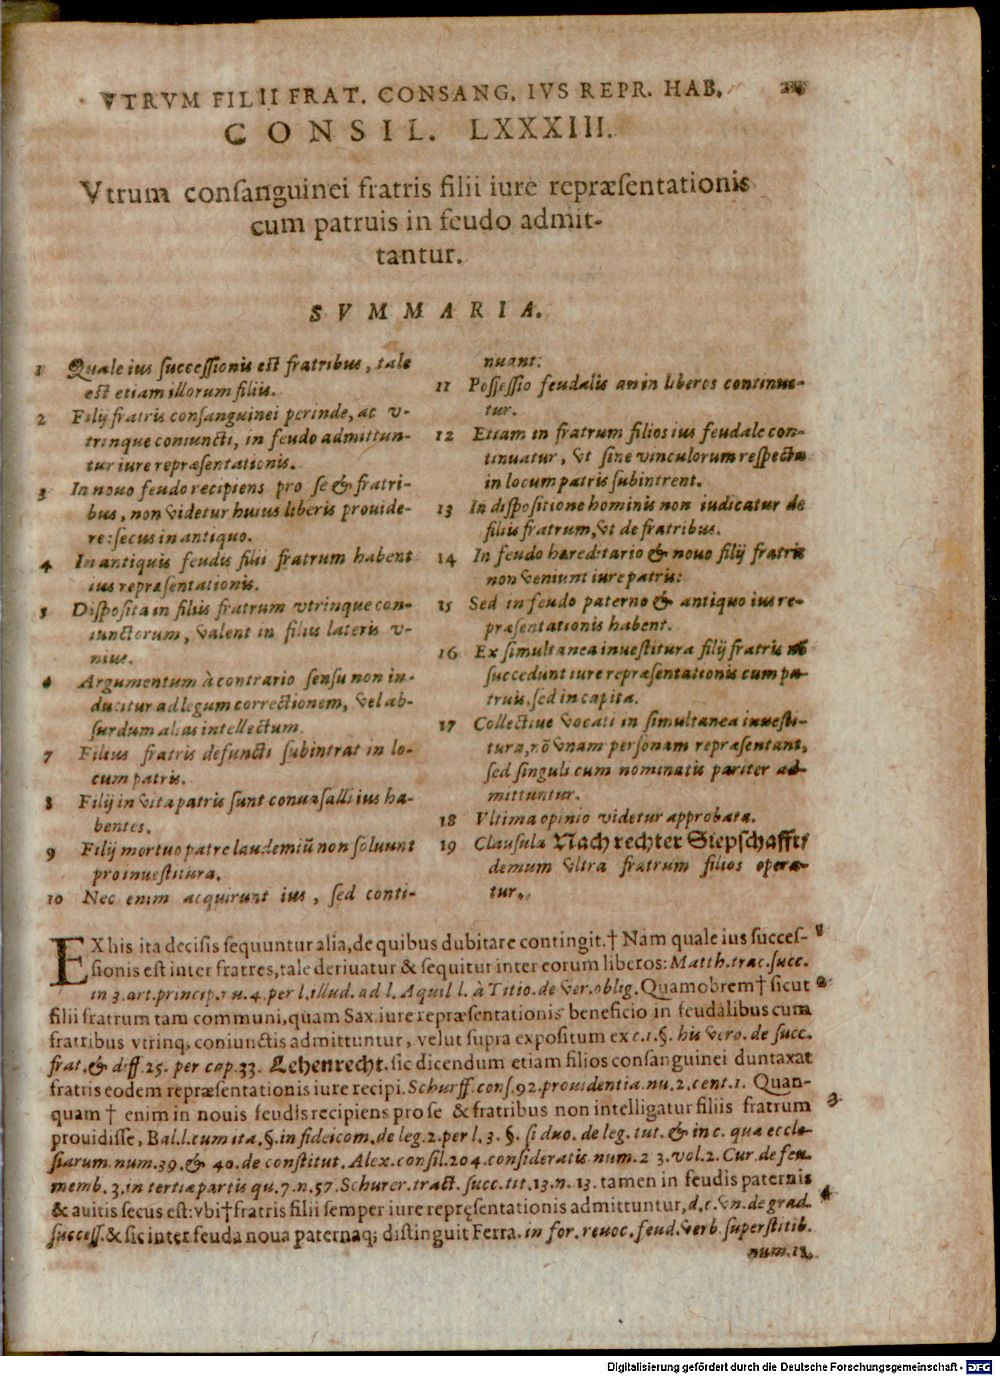 VTRVM FILII FRAT. CONSANG. IVS REPR. HAB.
CONSIL. LXXXIII.
Vtrum conſanguinei fratris filii iure repræſentationis
cum patruis in feudo admit-
tantur.
SVMMARIA.
1 Quale ius ſucceſſionis eſt fratribus, tale
eſt etiam illorum filiis.
2 Filij fratris conſanguinei perinde, ac v-
trinque coniuncti, in feudo admittun-
tur iure repræſentationis.
3 In nouo feudo recipiens pro ſe & fratri-
bus, non videtur huius liberis prouide-
re: ſecus in antiquo.
4 In antiquis feudis filii fratrum habent
ius repræſentationis.
5 Diſpoſita in filiis fratrum vtrinque con-
iunctorum, valent in filiis lateris v-
nius.
6 Argumentum à contrario ſenſu non in-
ducitur ad legum correctionem, vel ab-
ſurdum alias intellectum.
7 Filius fratris defuncti ſubintrat in lo-
cum patris.
8 Filij in vita patris ſunt conuaſalli ius ha-
bentes.
9 Filij mortuo patre laudemiũ non ſoluunt
pro inueſtitura.
10 Nec enim acquirunt ius, ſed conti-
nuant.
11 Poſſeſſio feudalis an in liberos continue-
tur.
12 Etiam in fratrum filios ius feudale con-
tinuatur, vt ſine vinculorum reſpectu
in locum patris ſubintrent.
13 In diſpoſitione hominis non iudicatur de
filiis fratrum, vt de fratribus.
14 In feudo hæreditario & nouo filij fratris
non veniunt iure patris:
15 Sed in feudo paterno & antiquo ius re-
præſentationis habent.
16 Ex ſimultanea inueſtitura filij fratris nõ
ſuccedunt iure repræſentationis cum pa-
truis, ſed in capita.
17 Collectiue vocati in ſimultanea inueſti-
tura, nõ vnam perſonam repræſentant,
ſed ſinguli cum nominatis pariter ad-
mittuntur.
18 Vltima opinio videtur approbata.
19 Clauſula Nach rechter Siepſchafft/
demum vltra fratrum filios opera-
tur.
EX his ita deciſis ſequuntur alia, de quibus dubitare contingit. † Nam quale ius ſucceſ- 1
ſionis eſt inter fratres, tale deriuatur & ſequitur inter eorum liberos: Matth. trac. ſucc.
in 3. art. princip. 1 n. 4. per l. illud. ad l. Aquil l. à Titio. de ver. oblig. Quamobrem † ſicut 2
filii fratrum tam communi, quam Sax. iure repræſentationis beneficio in feudalibus cum
fratribus vtrinq; coniunctis admittuntur, velut ſupra expoſitum ex c. 1. §. his vero. de ſucc.
frat. & diff. 25. per cap. 33. Lehenrecht. ſic dicendum etiam filios conſanguinei duntaxat
fratris eodem repræſentationis iure recipi. Schurff. conſ. 92. prouidentia. nu. 2. cent. 1. Quan-
quam † enim in nouis feudis recipiens pro ſe & fratribus non intelligatur filiis fratrum 3
prouidiſſe, Bal. l. cum ita. §. in fideicom. de leg. 2. per l. 3. §. ſi duo. de leg. tut. & in c. quæ eccle-
ſiarum. num. 39. & 40. de conſtitut. Alex. conſil. 204. conſideratis num. 2 3. vol. 2. Cur. de feu.
memb. 3. in tertiæ partis qu. 7. n. 57. Schurer. tract. ſucc. tit. 13. n. 13. tamen in feudis paternis
& auitis ſecus eſt: vbi † fratris filii ſemper iure repręſentationis admittuntur, d. c. vn. de grad. 4
ſucceſſ. & ſic inter feuda noua paternaq; diſtinguit Ferra. in for. reuoc. feud. verb. ſuperſtitib.
num. 12.
Digitalisierung gefördert durch die Deutsche Forschungsgemeinschaft - DFG